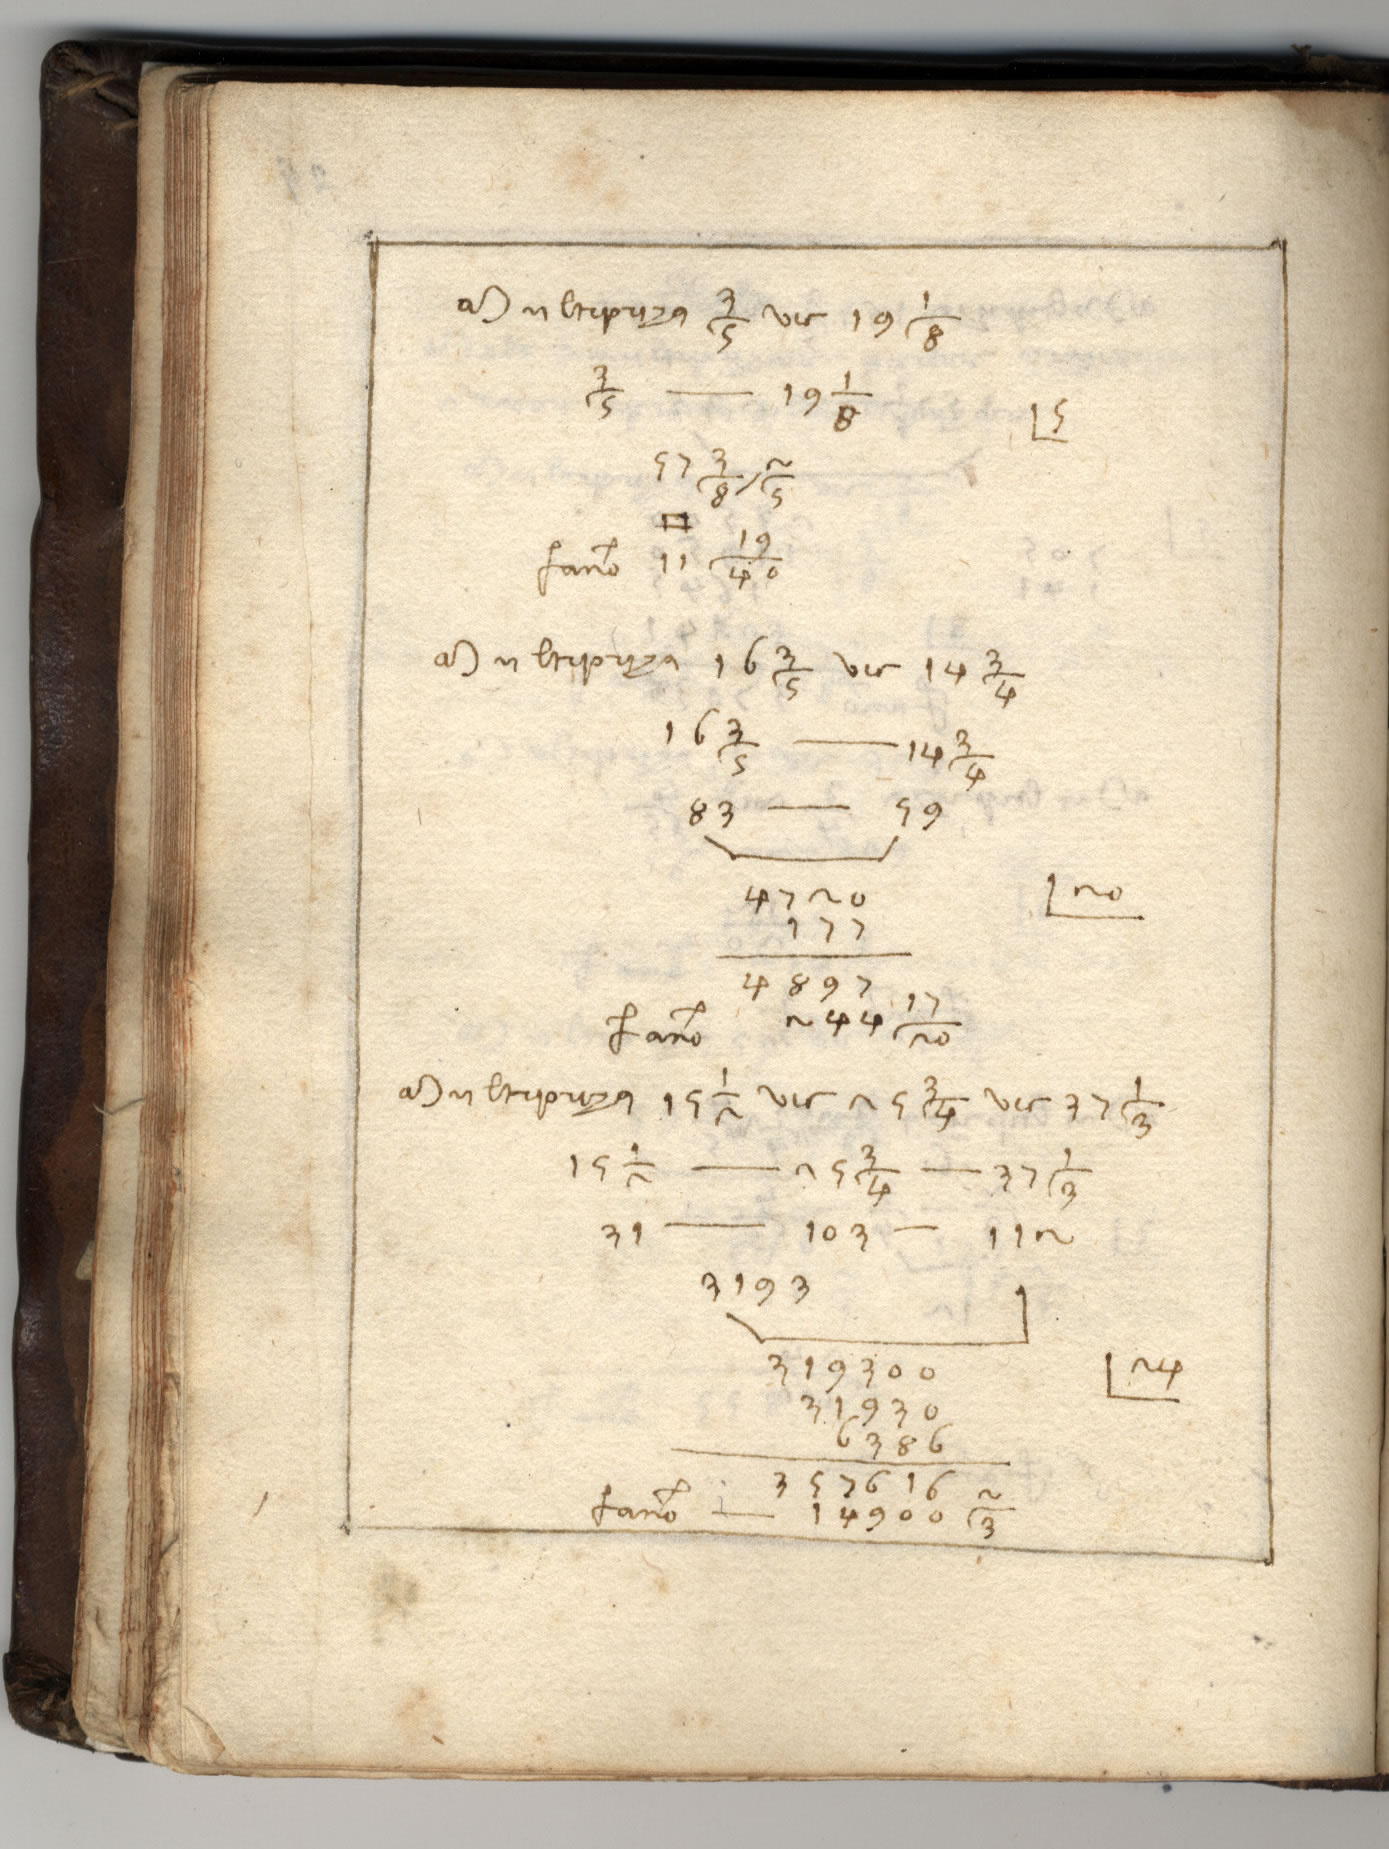 Multipriza 3/5 vie 19 1/8
3/5 — 19 1/8
5
57 3/8 / 2/5
fanno 11 19/40
Multipriza 16 3/5 vie 14 3/4
16 3/5 — 14 3/4
83 — 59
4720
20
177
4897
fanno 244 17/20
Multipriza 15 1/2 vie 25 3/4 vie 37 1/3
15 1/2 — 25 3/4 — 37 1/3
31 — 103 — 112
3193
319300
24
31930
6386
357616
fanno — 14900 2/3